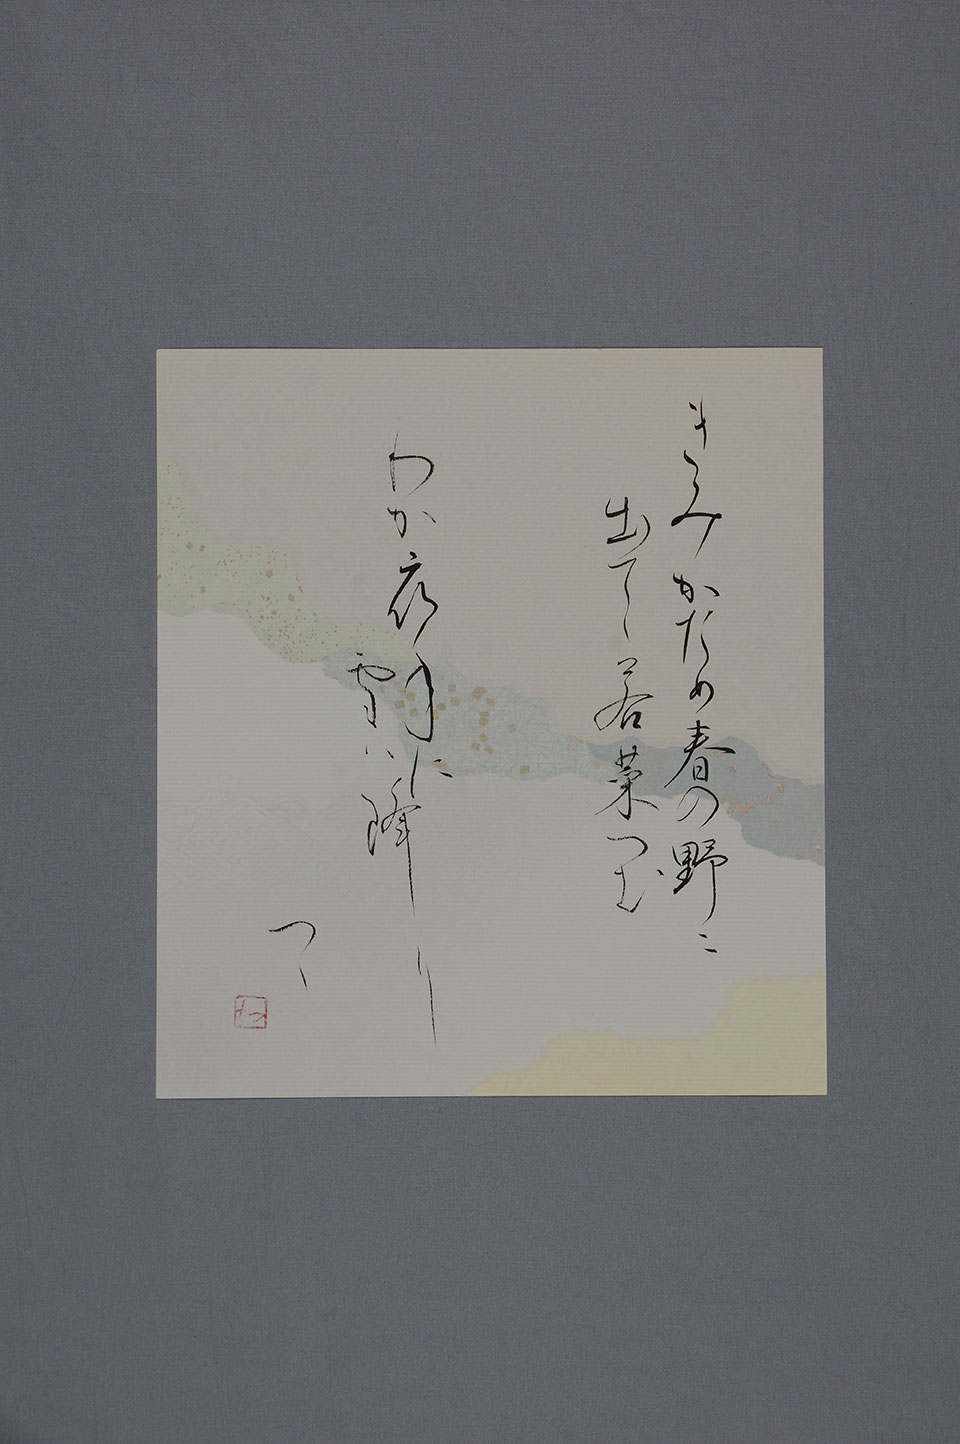 きみかため春の野に
出てゝ若菜つむ
わか衣手に
雪ハ降り
つゝ